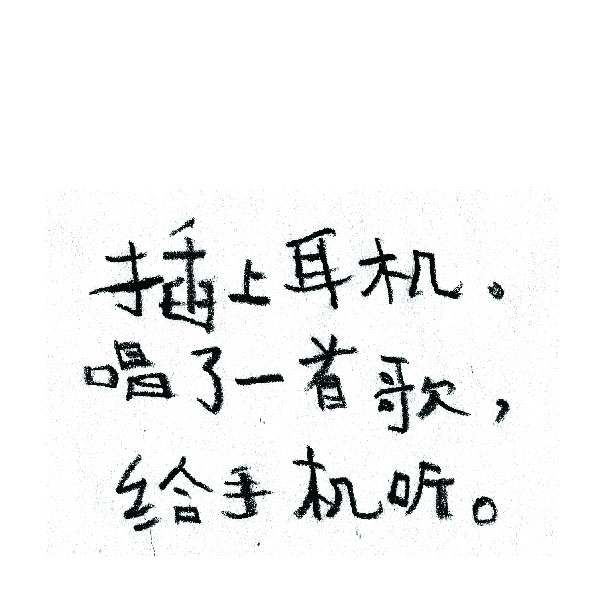 插上耳机、
唱了一首歌，
给手机听。